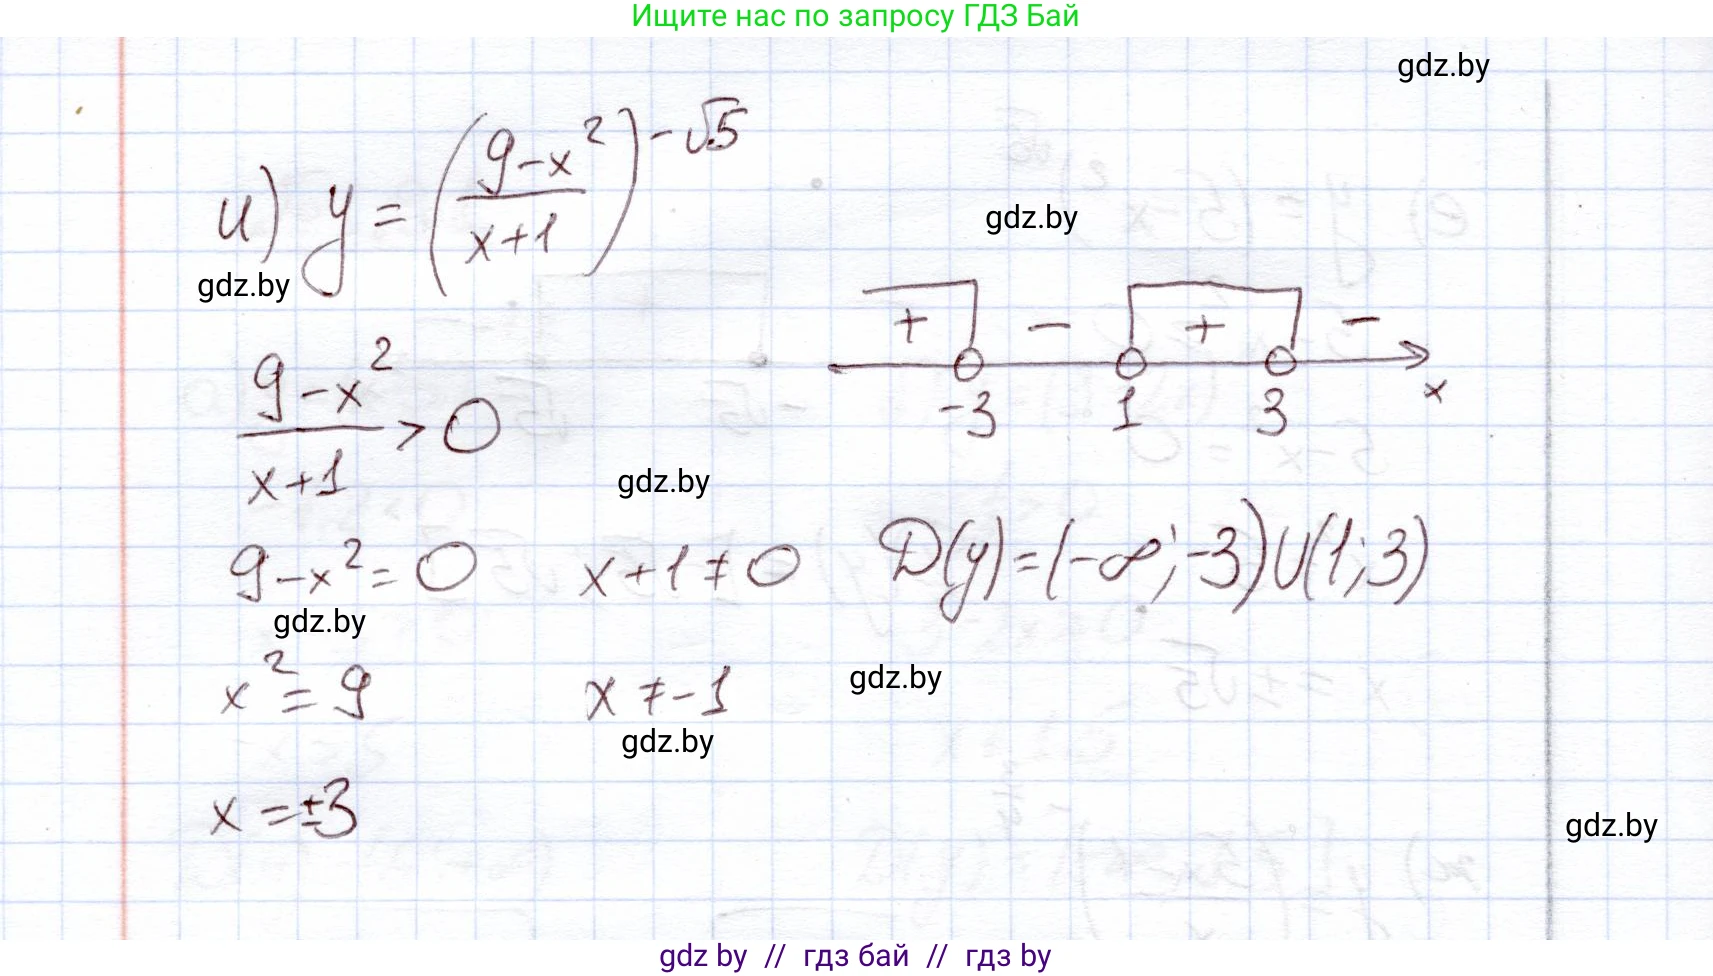 Ищите нас по запросу ГДЗ Бай
gdz.by
и) y = ((9-x²)/(x+1))^(-√5)
gdz.by
gdz.by
+ - + -
-3 1 3 x
(9-x²)/(x+1) > 0
gdz.by
9-x²=0 x+1≠0 D(y)=(-∞;-3)∪(1;3)
gdz.by
x²=9 x≠-1
gdz.by
gdz.by
x=±3
gdz.by
gdz by // гдз бай // гдз by